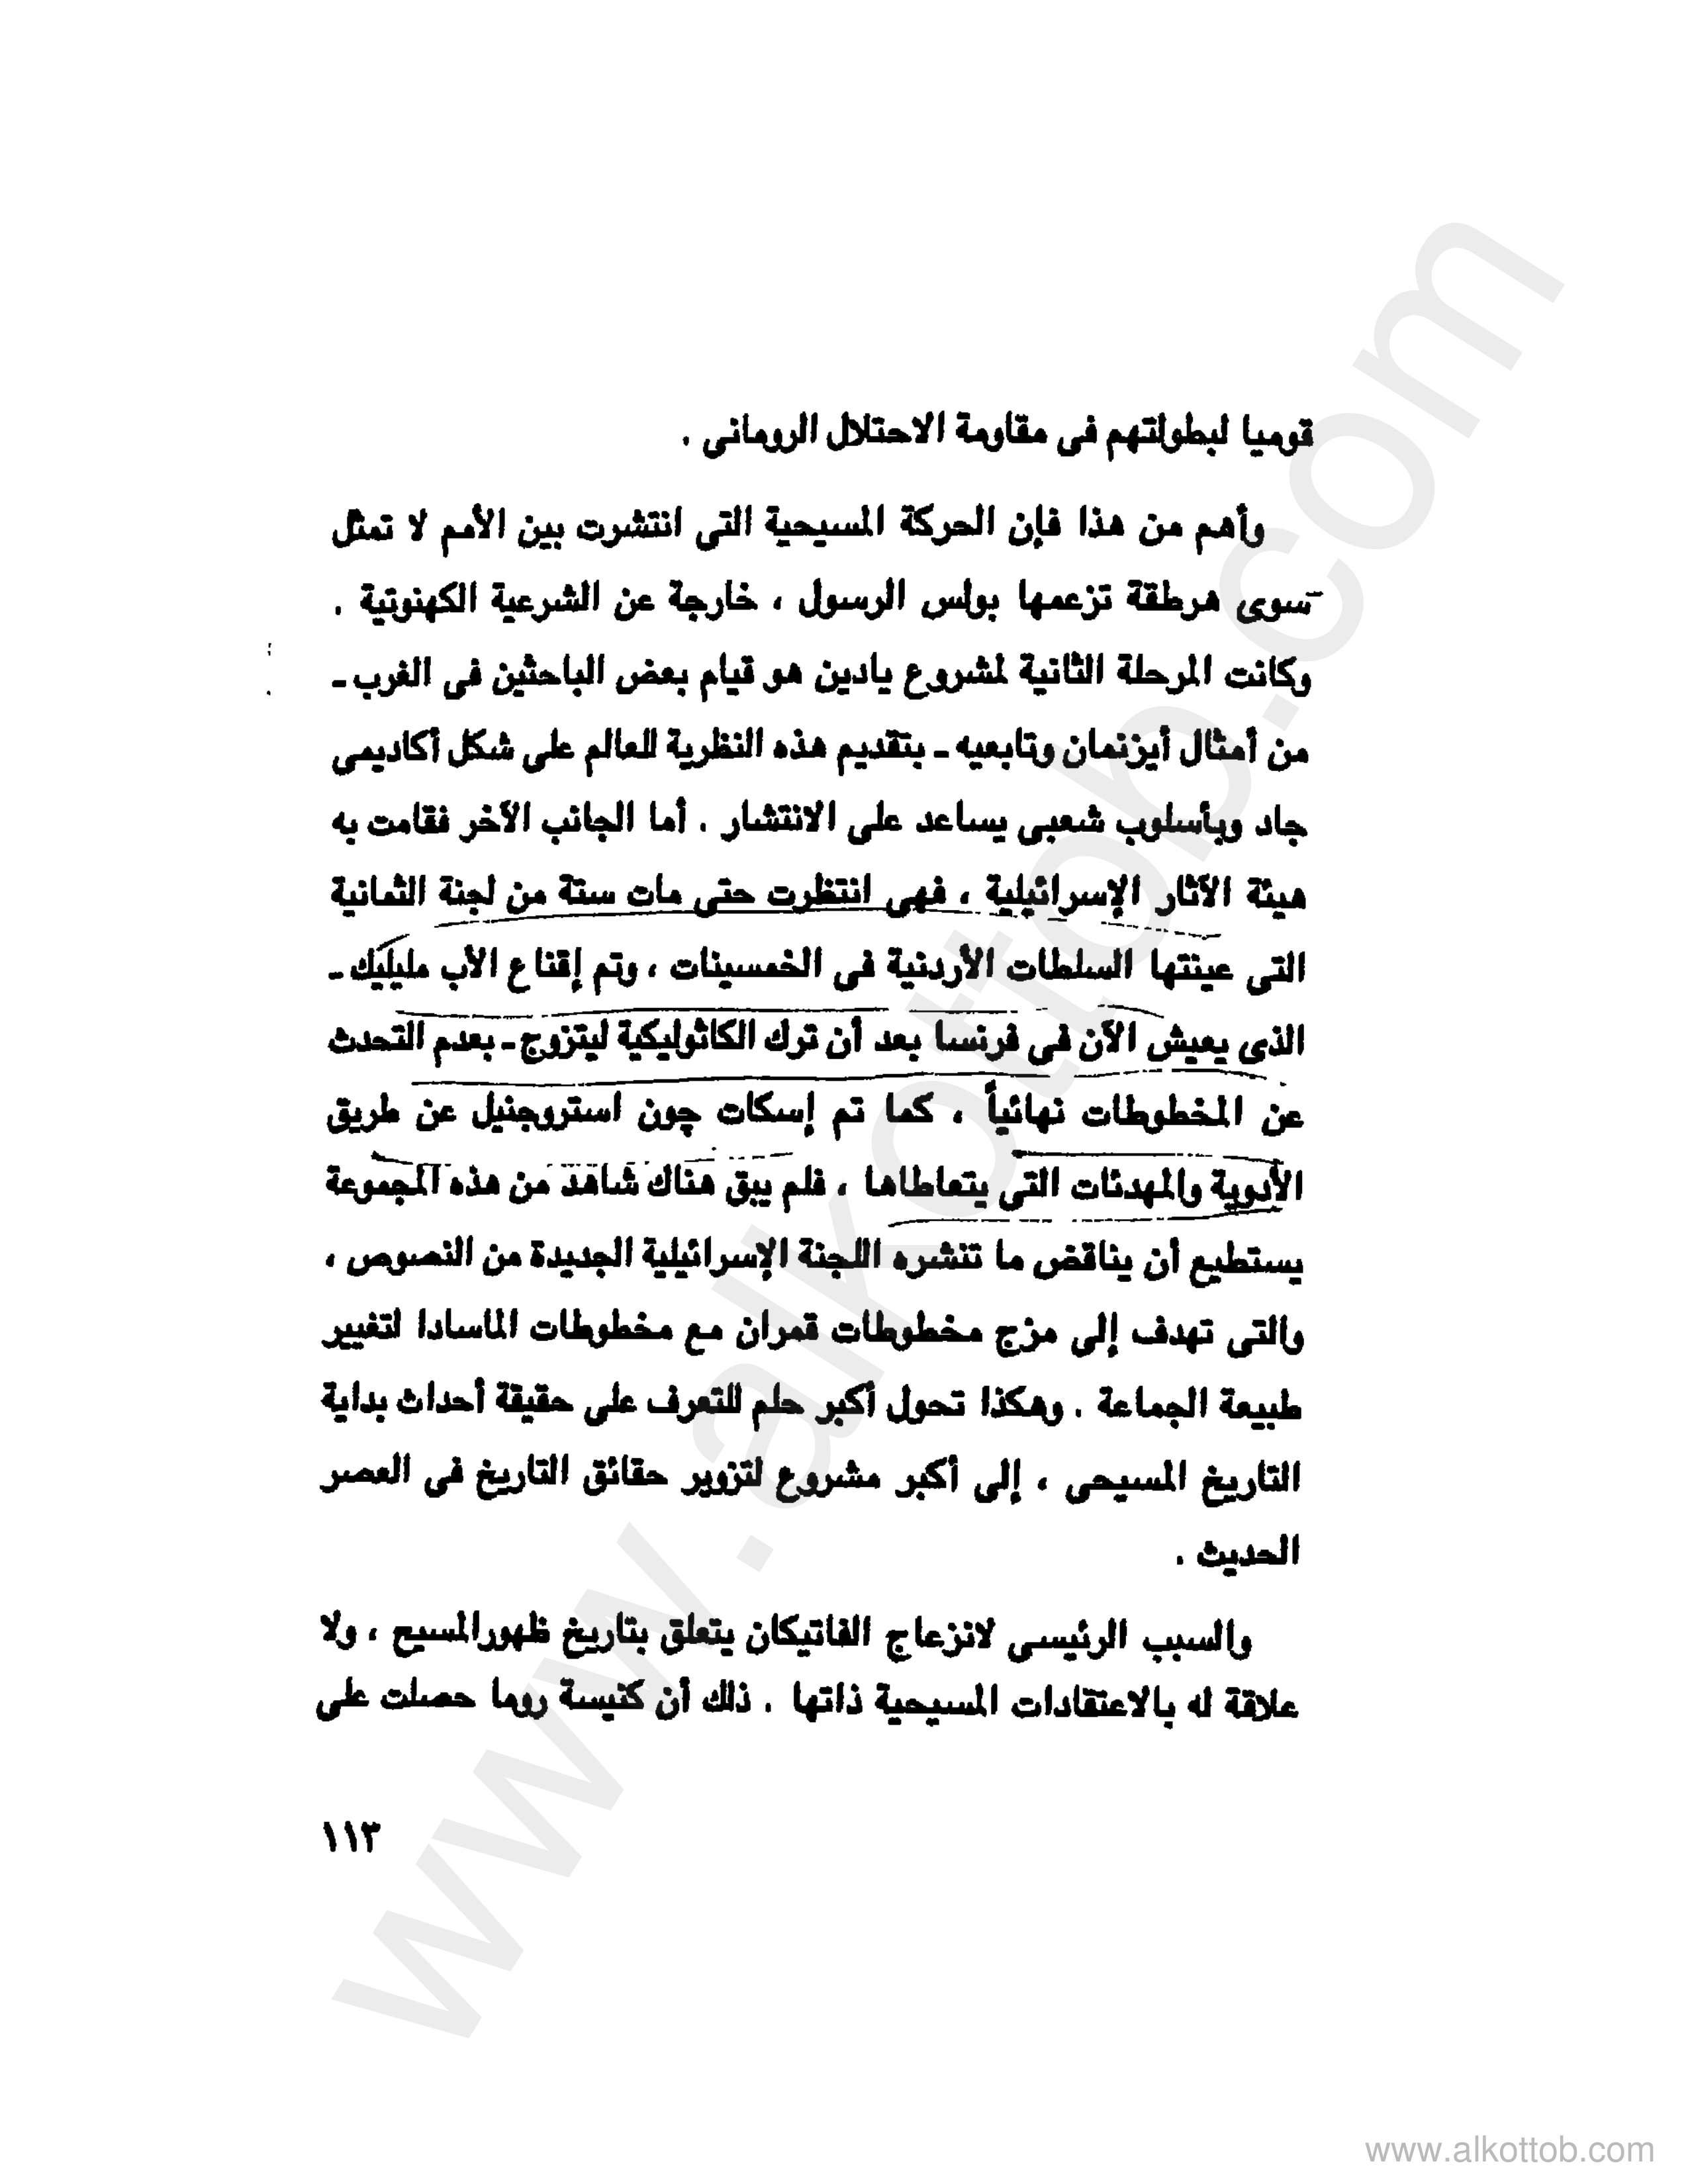 قوميا لبطولتهم فى مقاومة الاحتلال الرومانى .
وأهم من هذا فإن الحركة المسيحية التى انتشرت بين الأمم لا تمثل
سوى هرطقة تزعمها بولس الرسول ، خارجة عن الشرعية الكهنوتية .
وكانت المرحلة الثانية لمشروع يادين هو قيام بعض الباحثين فى الغرب ـ
من أمثال أيزنمان وتابعيه ـ بتقديم هذه النظرية للعالم على شكل أكاديمى
جاد وبأسلوب شعبى يساعد على الانتشار . أما الجانب الآخر فقامت به
هيئة الآثار الإسرائيلية ، فهى انتظرت حتى مات ستة من لجنة الثمانية
التى عينتها السلطات الأردنية فى الخمسينات ، وتم إقناع الأب مليليك ـ
الذى يعيش الآن فى فرنسا بعد أن ترك الكاثوليكية ليتزوج ـ بعدم التحدث
عن المخطوطات نهائياً ، كما تم إسكات چون استروجنيل عن طريق
الأدوية والمهدئات التى يتعاطاها ، فلم يبق هناك شاهد من هذه المجموعة
يستطيع أن يناقض ما تنشره اللجنة الإسرائيلية الجديدة من النصوص ،
والتى تهدف إلى مزج مخطوطات قمران مع مخطوطات الماسادا لتغيير
طبيعة الجماعة . وهكذا تحول أكبر حلم للتعرف على حقيقة أحداث بداية
التاريخ المسيحى ، إلى أكبر مشروع لتزوير حقائق التاريخ فى العصر
الحديث .
والسبب الرئيسى لانزعاج الفاتيكان يتعلق بتاريخ ظهورالمسيح ، ولا
علاقة له بالاعتقادات المسيحية ذاتها . ذلك أن كنيسة روما حصلت على
١١٣
www.alkottob.com
www.alkottob.com